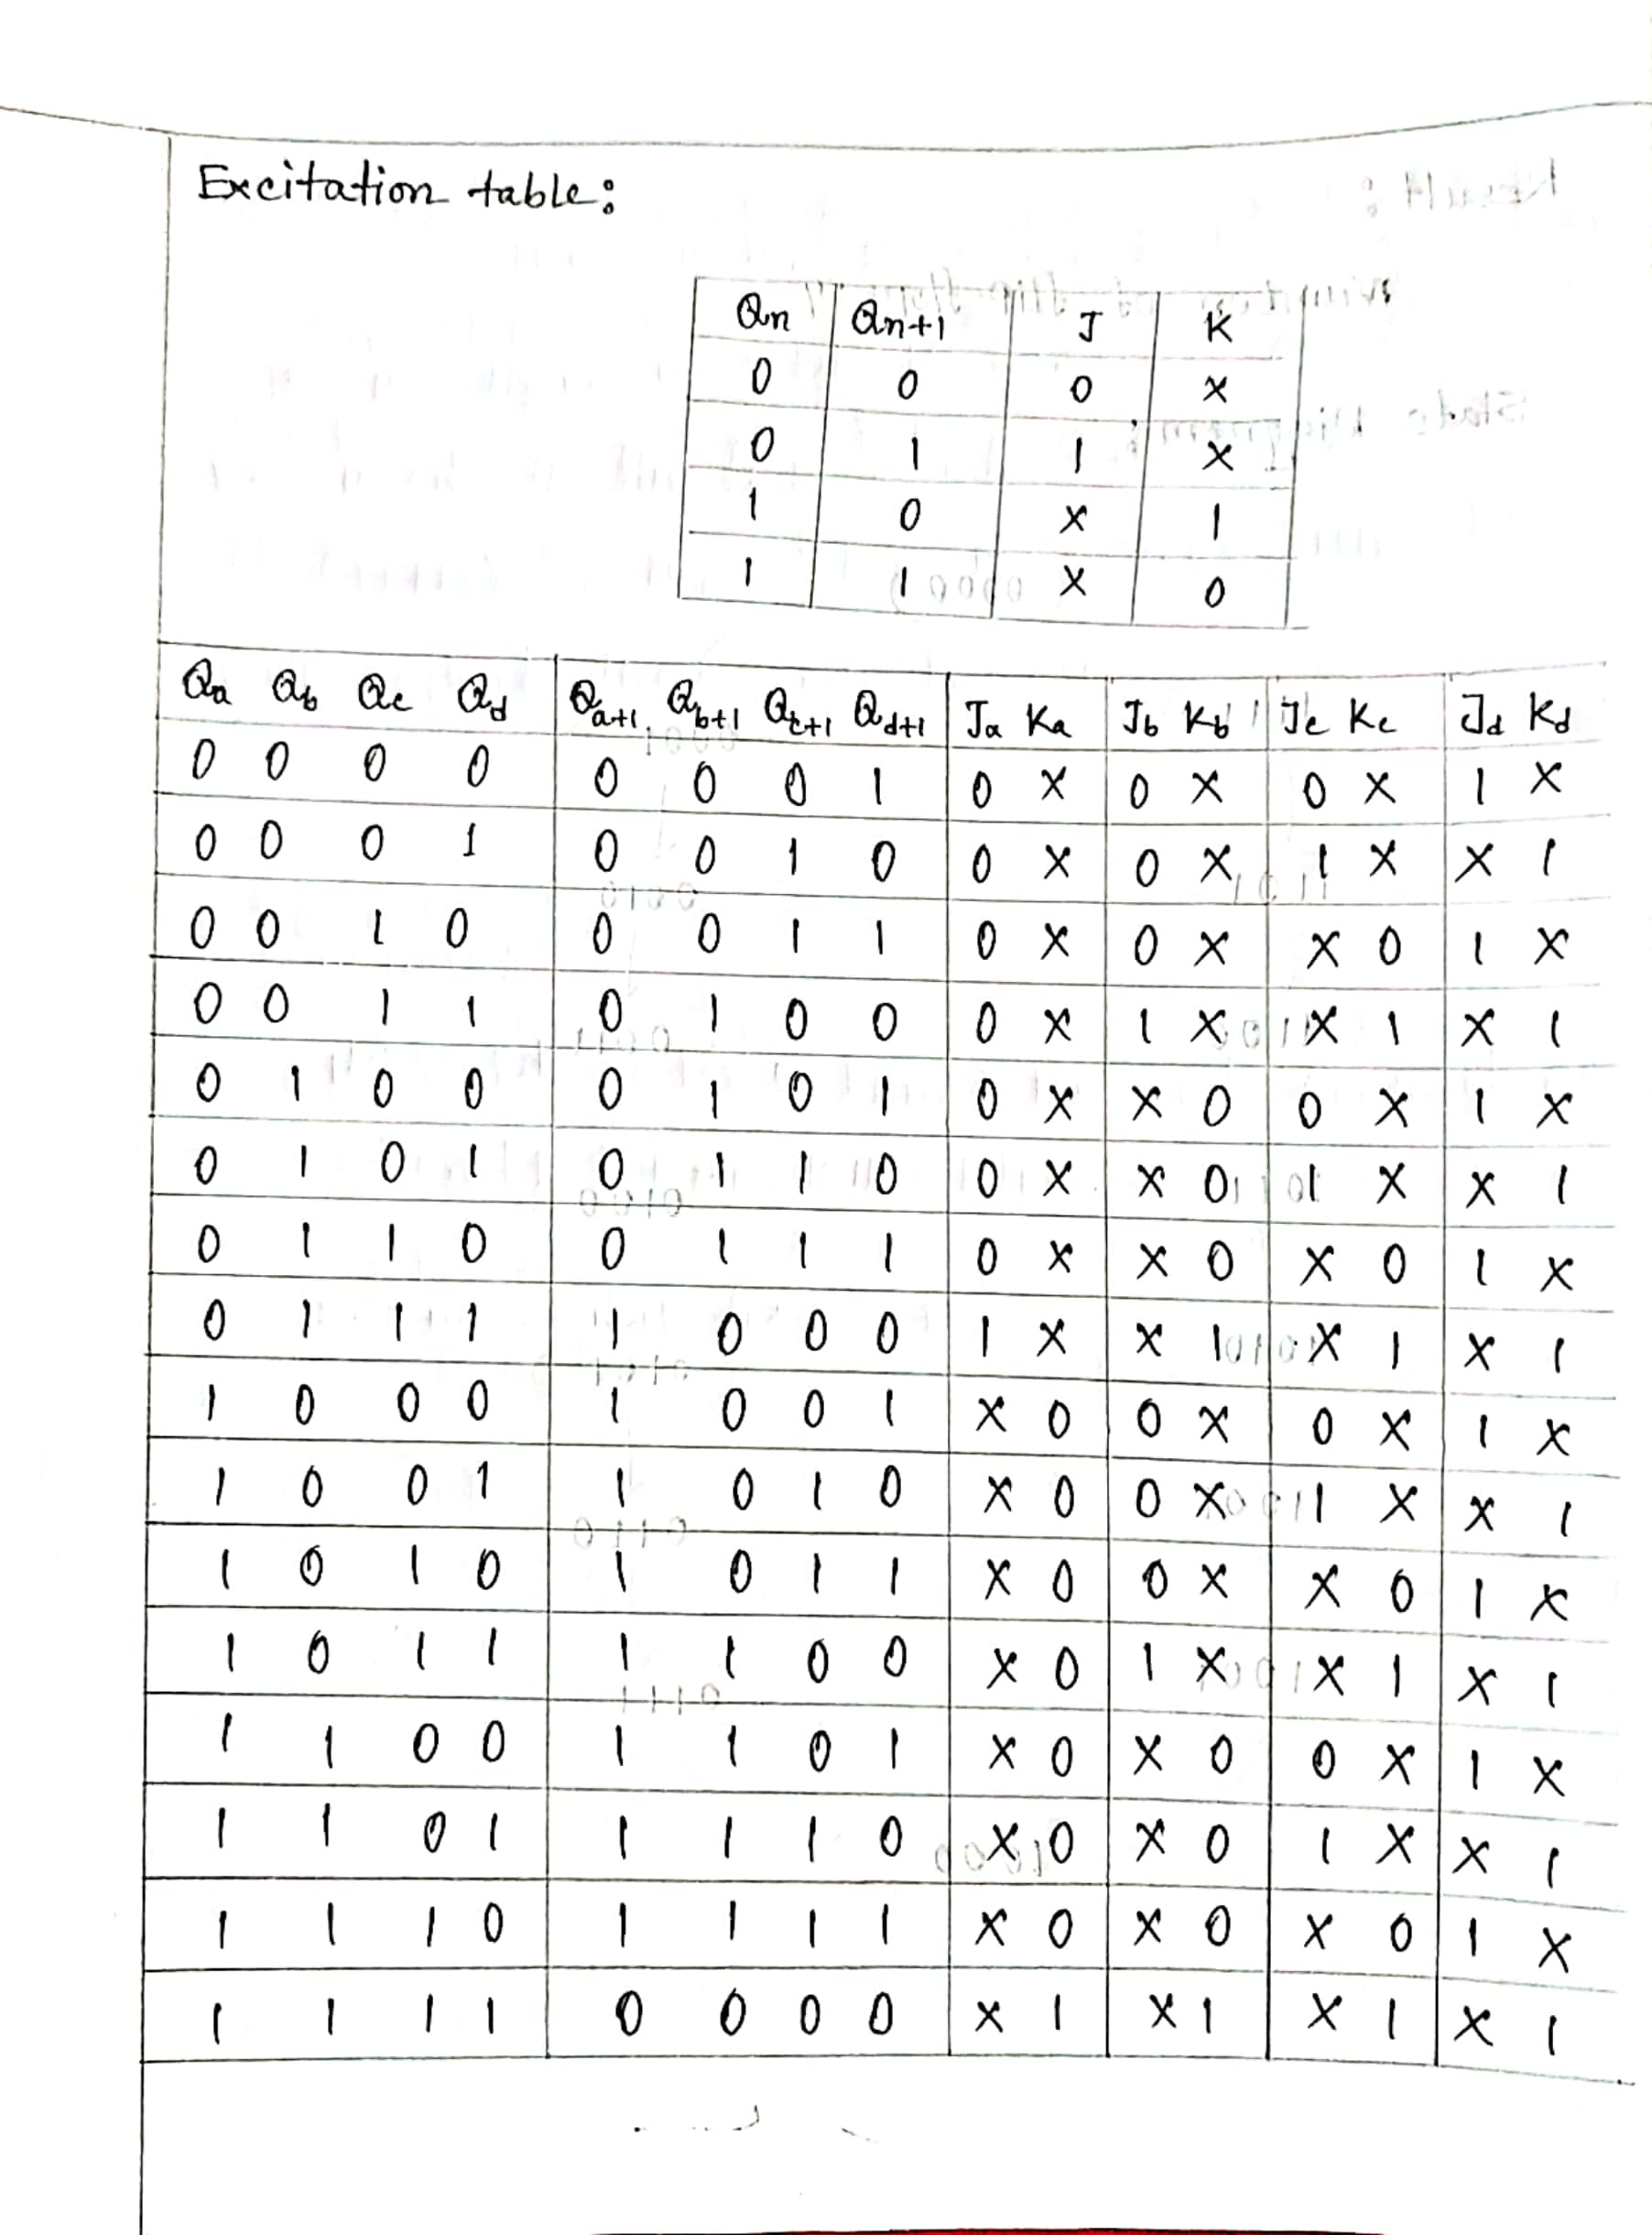 Excitation table:
Qn Qn+1 J K
0 0 0 X
0 1 1 X
1 0 X 1
1 1 X 0
Qa Qb Qc Qd Qa+1 Qb+1 Qc+1 Qd+1 Ja Ka Jb Kb Jc Kc Jd Kd
0 0 0 0 0 0 0 1 0 X 0 X 0 X 1 X
0 0 0 1 0 0 1 0 0 X 0 X 1 X X 1
0 0 1 0 0 0 1 1 0 X 0 X X 0 1 X
0 0 1 1 0 1 0 0 0 X 1 X X 1 X 1
0 1 0 0 0 1 0 1 0 X X 0 0 X 1 X
0 1 0 1 0 1 1 0 0 X X 0 1 X X 1
0 1 1 0 0 1 1 1 0 X X 0 X 0 1 X
0 1 1 1 1 0 0 0 1 X X 1 X 1 X 1
1 0 0 0 1 0 0 1 X 0 0 X 0 X 1 X
1 0 0 1 1 0 1 0 X 0 0 X 1 X X 1
1 0 1 0 1 0 1 1 X 0 0 X X 0 1 X
1 0 1 1 1 1 0 0 X 0 1 X X 1 X 1
1 1 0 0 1 1 0 1 X 0 X 0 0 X 1 X
1 1 0 1 1 1 1 0 X 0 X 0 1 X X 1
1 1 1 0 1 1 1 1 X 0 X 0 X 0 1 X
1 1 1 1 0 0 0 0 X 1 X 1 X 1 X 1